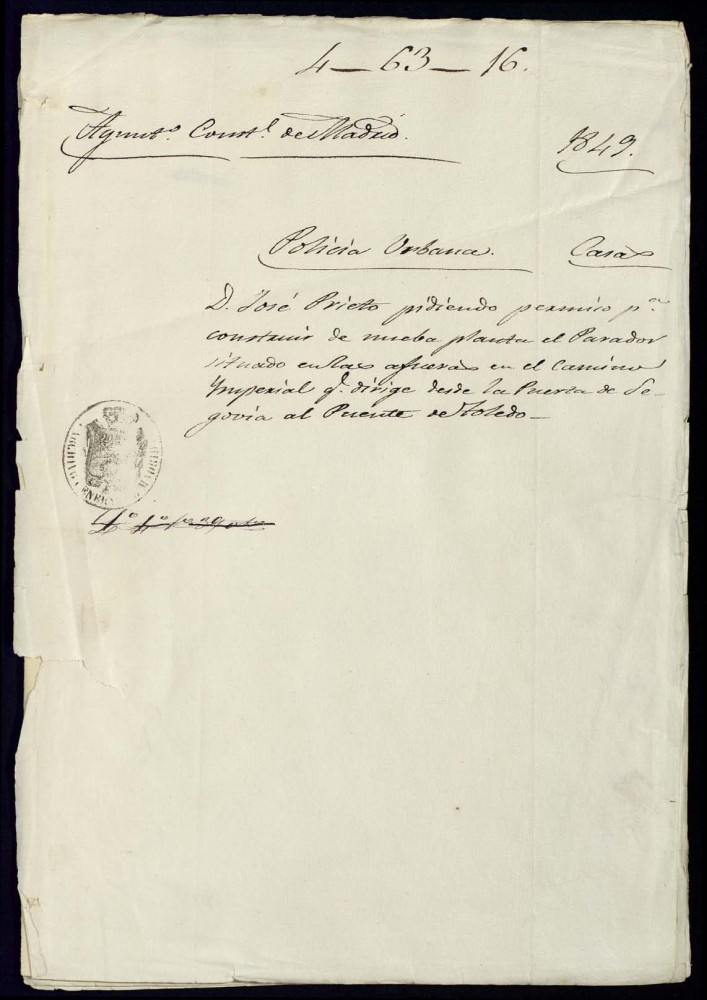 4-63-16.
Ayunto. Constl. de Madrid.
1849.
Policia Urbana. Casas
D. José Prieto pidiendo permiso pa.
construir de nueba planta el Parador
situado en las afueras en el Camino
Ymperial q. dirige desde la Puerta de Se-
govia al Puente de Toledo-